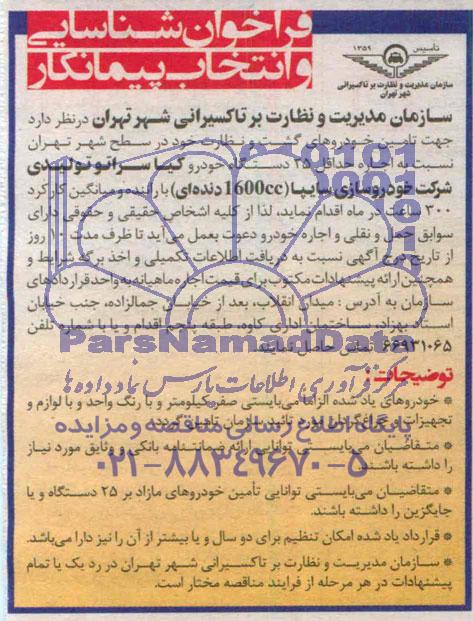 فراخوان شناسایی
و انتخاب پیمانکار
تاسیس ۱۳۵۹
سازمان مدیریت و نظارت بر تاکسیرانی
شهر تهران
سازمان مدیریت و نظارت بر تاکسیرانی شهر تهران درنظر دارد
جهت تامین خودروهای گشت و نظارت خود در سطح شهر تهران
نسبت به اجاره حداقل ۲۵ دستگاه خودرو کیا سراتو تولیدی
شرکت خودروسازی سایپا (1600cc دنده‌ای) با راننده و میانگین کارکرد
۳۰۰ ساعت در ماه اقدام نماید، لذا از کلیه اشخاص حقیقی و حقوقی دارای
سوابق حمل و نقلی و اجاره خودرو دعوت بعمل می‌آید تا ظرف مدت ۱۰ روز
از تاریخ درج آگهی نسبت به دریافت اطلاعات تکمیلی و اخذ برگه شرایط و
همچنین ارائه پیشنهادات مکتوب برای قیمت اجاره ماهیانه به واحد قراردادهای
سازمان به آدرس : میدان انقلاب، بعد از خیابان جمالزاده، جنب خیابان
استاد بهزاد، ساختمان اداری کاوه، طبقه پنجم اقدام و یا با شماره تلفن
۶۶۹۳۱۰۶۵ تماس حاصل نمایند.
ParsNamadData
مرکز آوری اطلاعات پارس نماد داده ها
پایگاه اطلاع رسانی مناقصه و مزایده
۰۲۱-۸۸۳۴۹۶۷۰-۵
توضیحات :
* خودروهای یاد شده الزاماً می‌بایستی صفر کیلومتر و با رنگ واحد و با لوازم و
تجهیزات و مورد تائید سازمان
* متقاضیان می‌بایستی توانایی ارائه ضمانتنامه بانکی و وثایق مورد نیاز
را داشته باشند.
* متقاضیان می‌بایستی توانایی تأمین خودروهای مازاد بر ۲۵ دستگاه و یا
جایگزین را داشته باشند.
* قرارداد یاد شده امکان تنظیم برای دو سال و یا بیشتر از آن را نیز دارا می‌باشد.
* سازمان مدیریت و نظارت بر تاکسیرانی شهر تهران در رد یک یا تمام
پیشنهادات در هر مرحله از فرایند مناقصه مختار است.